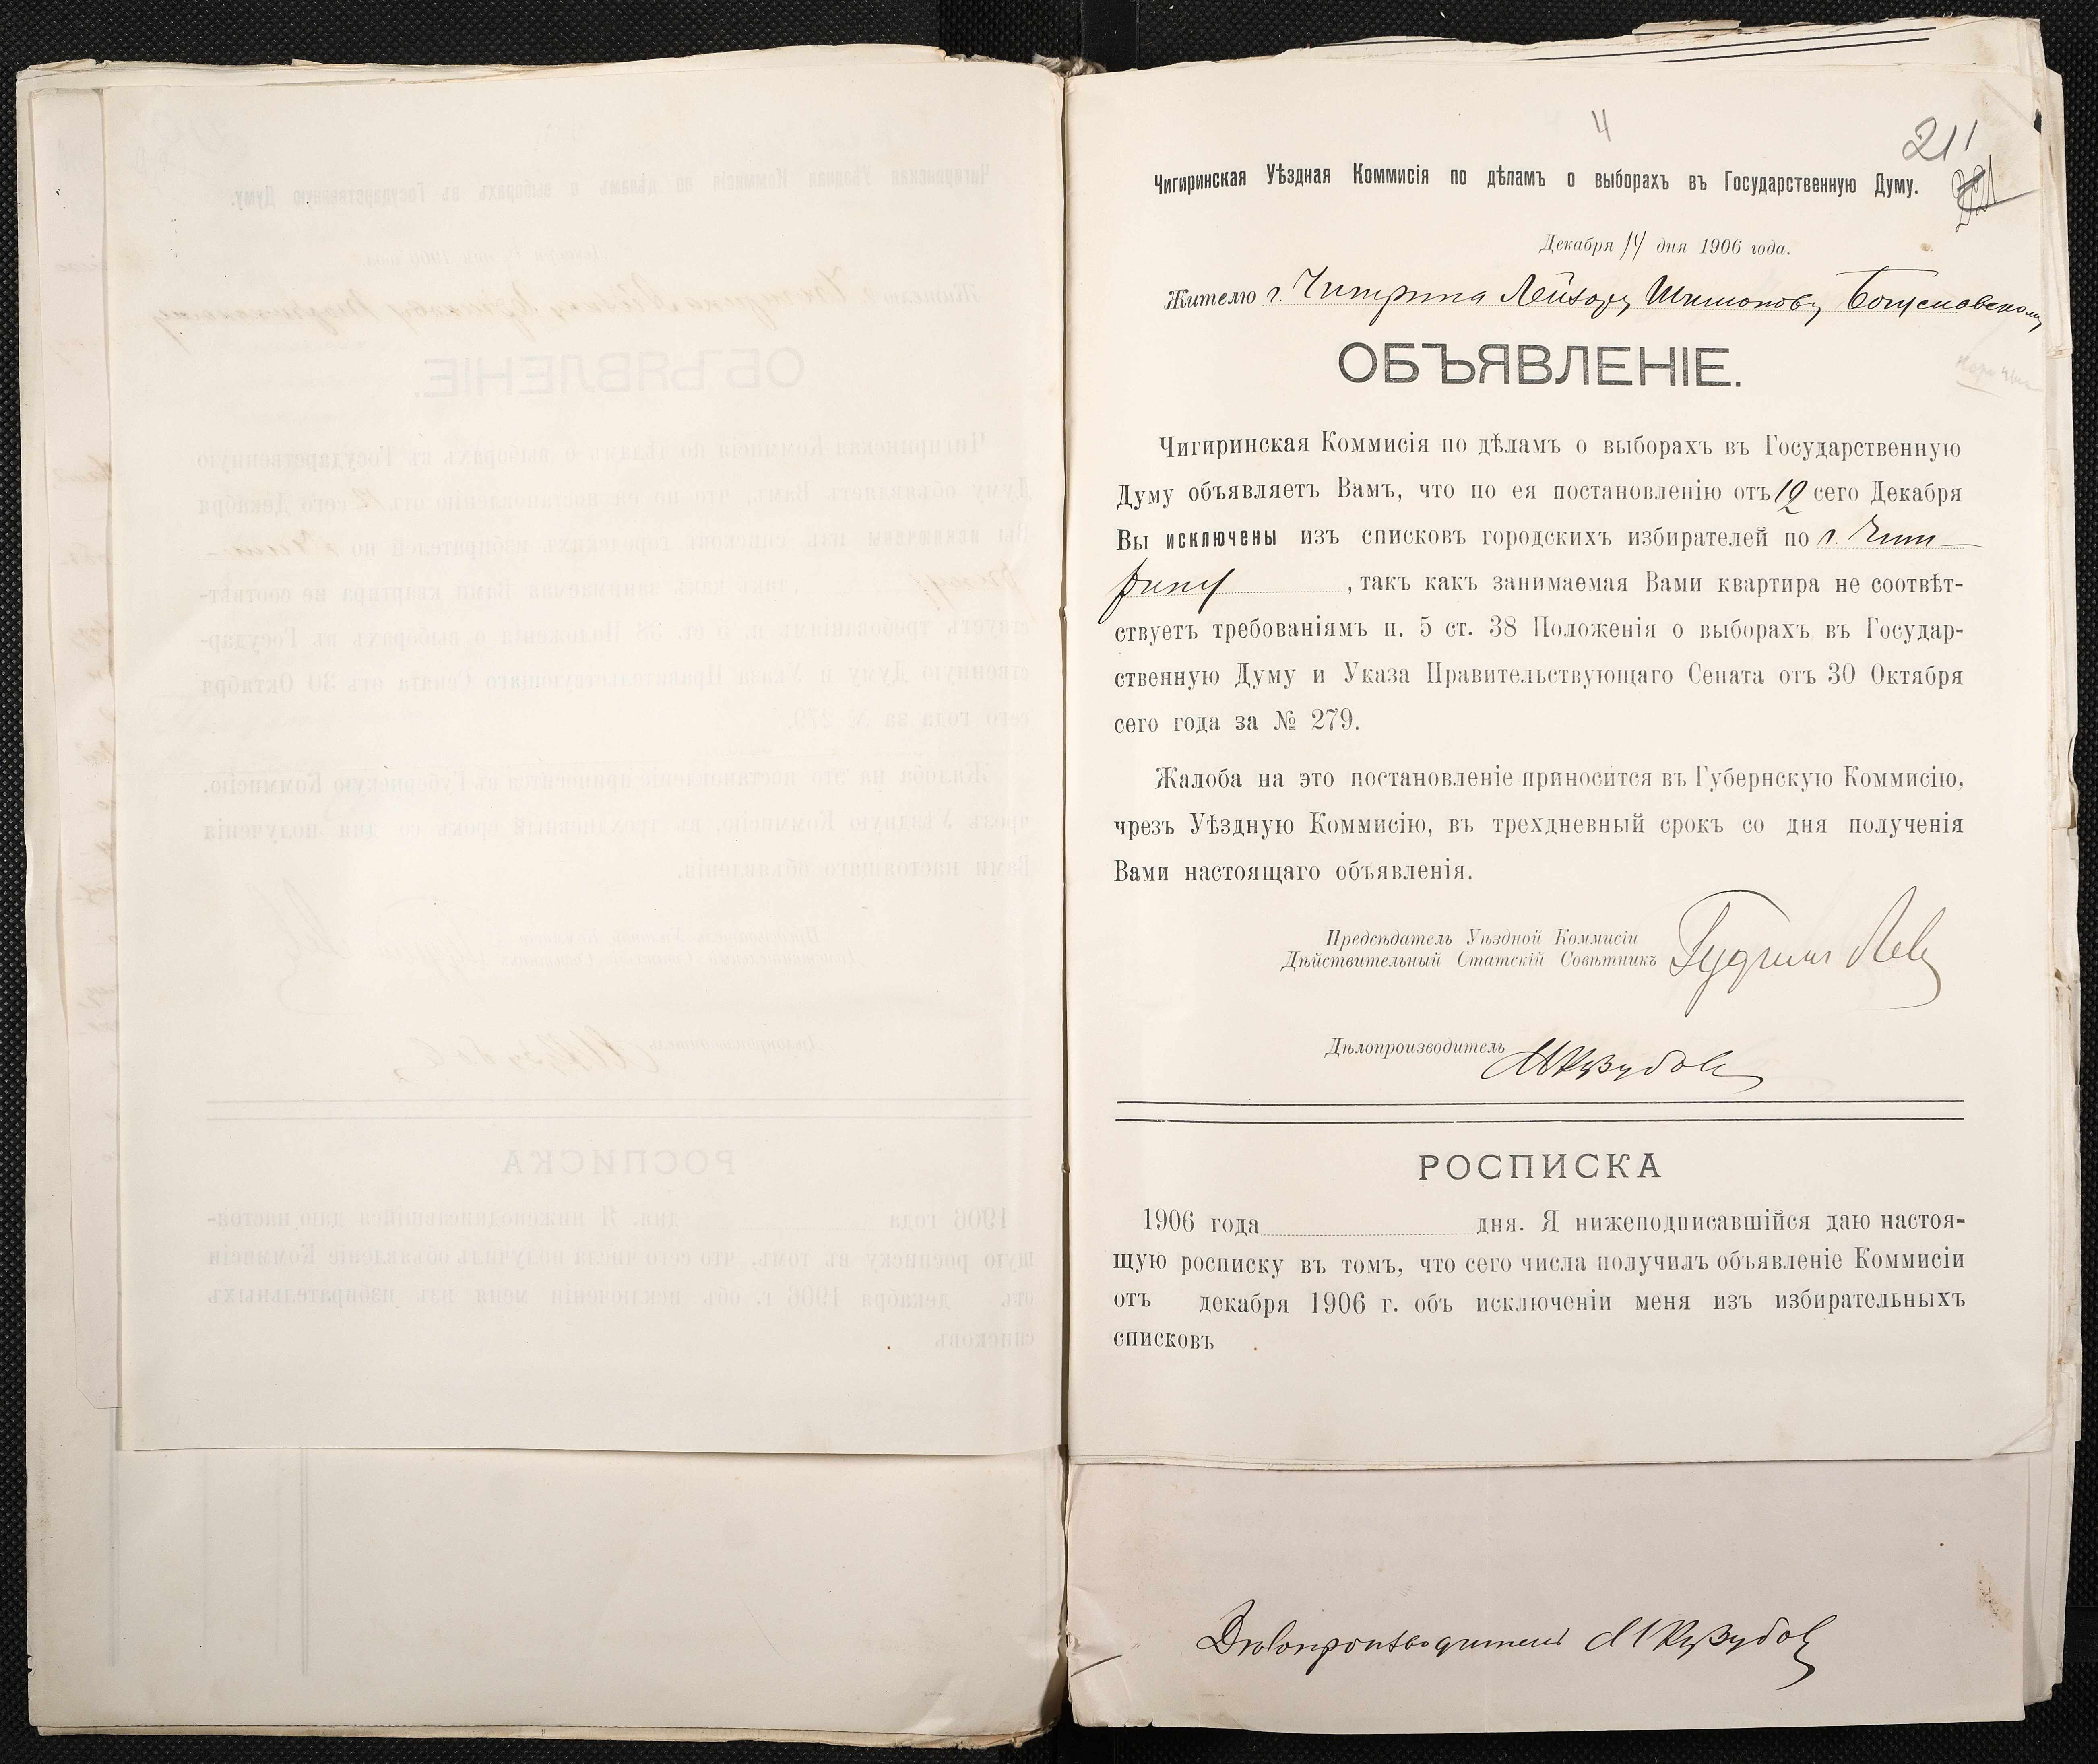 4
211
Чигиринская Уѣздная Коммисія по дѣламъ о выборахъ въ Государственную Думу.
Декабря 14 дня 1906 года.
Жителю г. Чигирина Лейзору Шимонову Богуславскому
ОБЪЯВЛЕНІЕ.
Чигиринская Коммисія по дѣламъ о выборахъ въ Государственную
Думу объявляетъ Вамъ, что по ея постановленію отъ 12 сего Декабря
Вы исключены изъ списковъ городскихъ избирателей по г. Чиги-
рину , такъ какъ занимаемая Вами квартира не соотвѣт-
ствуетъ требованіямъ п. 5 ст. 38 Положенія о выборахъ въ Государ-
ственную Думу и Указа Правительствующаго Сената отъ 30 Октября
сего года за № 279.
Жалоба на это постановленіе приносится въ Губернскую Коммисію,
чрезъ Уѣздную Коммисію, въ трехдневный срокъ со дня полученія
Вами настоящаго объявленія.
Предсѣдатель Уѣздной Коммисіи
Дѣйствительный Статскій Совѣтникъ
Дѣлопроизводитель
РОСПИСКА
1906 года дня. Я нижеподписавшійся даю настоя-
щую росписку въ томъ, что сего числа получилъ объявленіе Коммисіи
отъ декабря 1906 г. объ исключеніи меня изъ избирательныхъ
списковъ
Дѣлопроизводитель